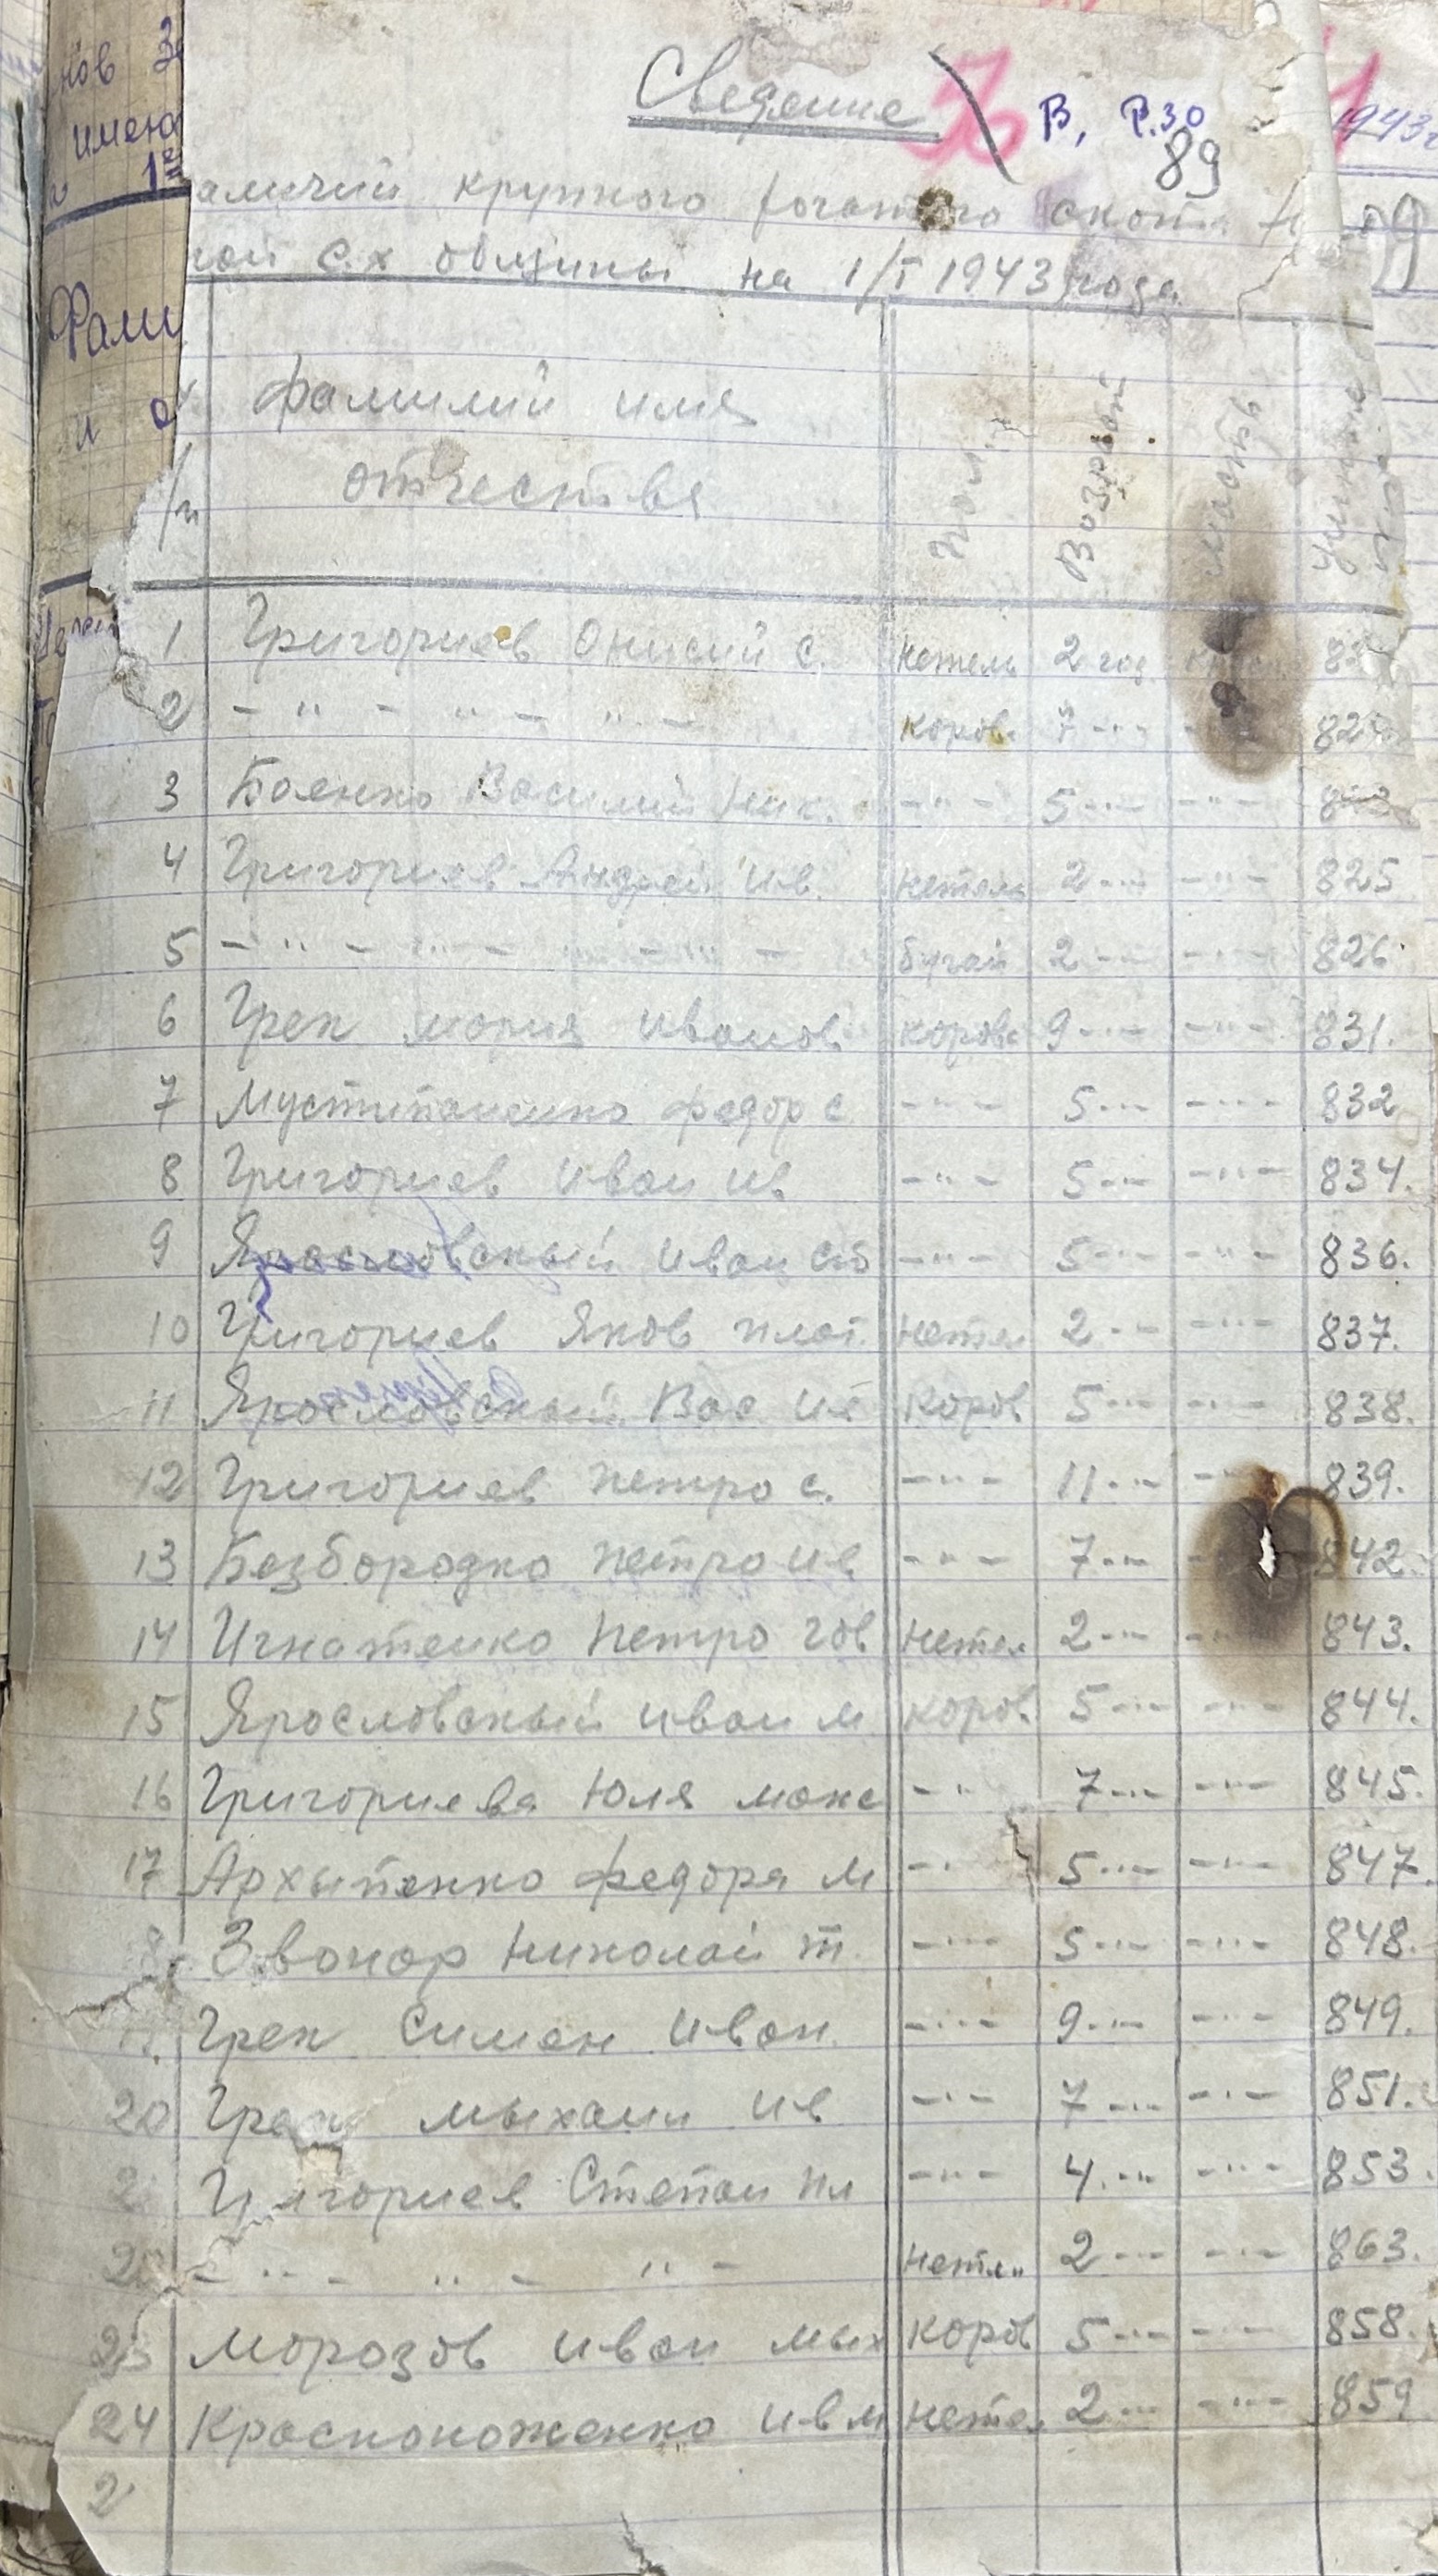 Сведение
В, Р.30
89
1943г
аличий крупного рогатого скота
ной с.х общины на 1/I 1943 года
Фами
имею
фамилий имя
отчества
/п
Пол
Возраст
масть
1 Григориев Онисий С. нетель 2 год
2 - " - " - " - коров. 7 - " - 82
3 Боенко Василий Ник. - " - 5 - " - - " -
4 Григориев Андрей Ив. нетель 2 - " - - " - 825
5 - " - " - " - " - бугай 2 - " - - " - 826
6 Грек мария Иванов корова 9 - " - - " - 831.
7 Мустипаненко федор с - " - 5 - " - - " - 832
8 Григориев Иван Ив - " - 5 - " - - " - 834.
9 Ярославский Иван Ст - " - 5 - " - - " - 836.
10 Григориев Яков плат. нетел 2 - " - - " - 837.
11 Ярославский Вас Ив Коров 5 - " - - " - 838.
12 Григориев петро с. - " - 11 - " - - " 839.
13 Безбородко петро Ив - " - 7 - " - 842.
14 Игнатенко петро Гав нетел 2 - " - - " 843.
15 Ярославский Иван м коров. 5 - " - - " - 844.
16 Григориева Юля макс - " 7 - " - - " - 845.
17 Архыпенко федора м - " 5 - " - - " - 847.
8 Звонар Николай т. - " - 5 - " - - " - 848.
Грек Симон Иван. - " - 9 - " - - " - 849.
20 Грек мыхаил Ив - " - 7 - " - - " - 851.
2 Григориев Степан пл - " - 4. - " - - " - 853.
2 - " - " - " - нетл" 2 - " - - " - 863.
23 морозов Иван мых коров 5 - " - - " - 858.
24 Красноноженко Ив м нетел 2 - " - - " - 859
2